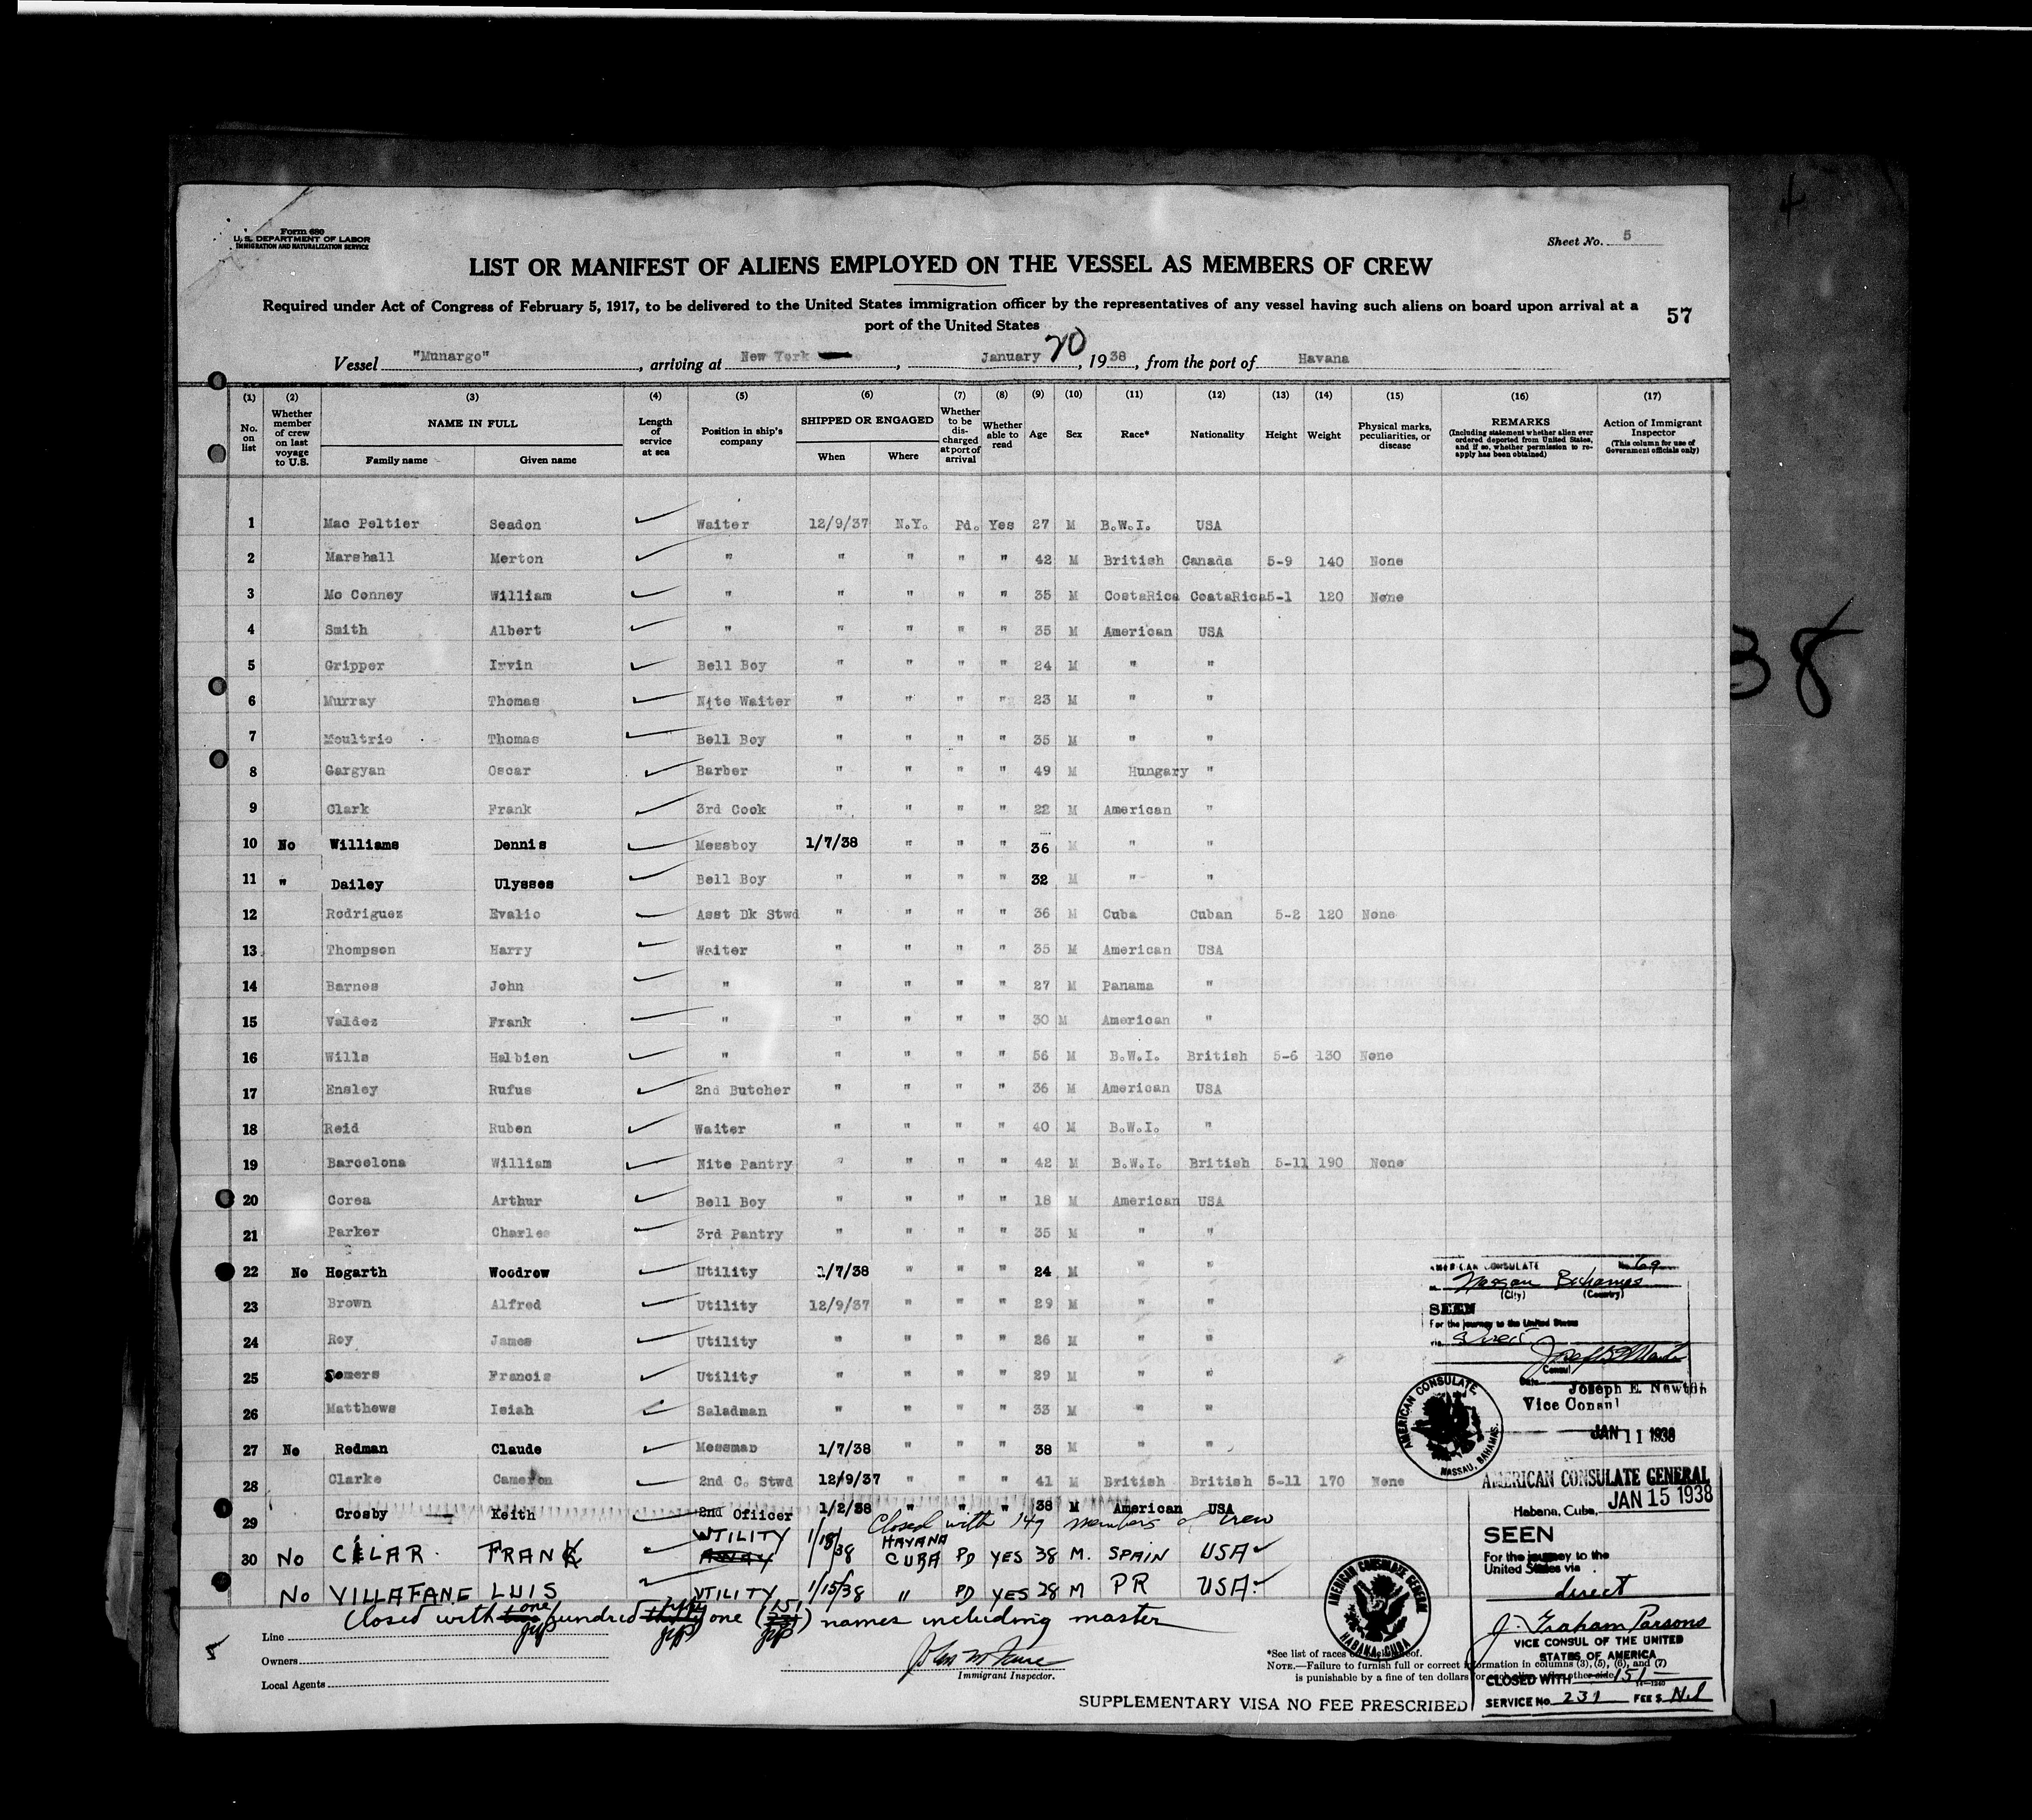 4
Form 680
U. S. DEPARTMENT OF LABOR
IMMIGRATION AND NATURALIZATION SERVICE
Sheet No. 5
LIST OR MANIFEST OF ALIENS EMPLOYED ON THE VESSEL AS MEMBERS OF CREW
Required under Act of Congress of February 5, 1917, to be delivered to the United States immigration officer by the representatives of any vessel having such aliens on board upon arrival at a
port of the United States
57
Vessel "Munargo", arriving at New York, January 20, 1938, from the port of Havana
(1) (2) (3) (4) (5) (6) (7) (8) (9) (10) (11) (12) (13) (14) (15) (16) (17)
No. on list
Whether member of crew on last voyage to U.S.
NAME IN FULL
Family name Given name
Length of service at sea
Position in ship's company
SHIPPED OR ENGAGED
When Where
Whether to be discharged at port of arrival
Whether able to read
Age Sex Race* Nationality Height Weight
Physical marks, peculiarities, or disease
REMARKS
(Including statement whether alien ever ordered deported from United States, and if so, whether permission to reapply has been obtained)
Action of Immigrant Inspector
(This column for use of Government officials only)
1 Mac Peltier Seadon Waiter 12/9/37 N.Y. Pd. Yes 27 M B.W.I. USA
2 Marshall Merton " " " " " 42 M British Canada 5-9 140 None
3 Mc Conney William " " " " " 35 M CostaRica CoataRica 5-1 120 None
4 Smith Albert " " " " " 35 M American USA
5 Gripper Irvin Bell Boy " " " " 24 M " "
6 Murray Thomas Nite Waiter " " " " 23 M " "
7 Moultrie Thomas Bell Boy " " " " 35 M " "
8 Gargyan Oscar Barber " " " " 49 M Hungary "
9 Clark Frank 3rd Cook " " " " 22 M American "
10 No Williams Dennis Messboy 1/7/38 " " " 36 M " "
11 " Dailey Ulysses Bell Boy " " " " 32 M " "
12 Rodriguez Evalio Asst Dk Stwd " " " " 36 M Cuba Cuban 5-2 120 None
13 Thompson Harry Waiter " " " " 35 M American USA
14 Barnes John " " " " " 27 M Panama "
15 Valdez Frank " " " " " 30 M American "
16 Wills Halbien " " " " " 56 M B.W.I. British 5-6 130 None
17 Ensley Rufus 2nd Butcher " " " " 36 M American USA
18 Reid Ruben Waiter " " " " 40 M B.W.I. "
19 Barcelona William Nite Pantry " " " " 42 M B.W.I. British 5-11 190 None
20 Corea Arthur Bell Boy " " " " 18 M American USA
21 Parker Charles 3rd Pantry " " " " 35 M " "
22 No Hogarth Woodrow Utility 1/7/38 " " " 24 M " "
23 Brown Alfred Utility 12/9/37 " " " 29 M " "
24 Roy James Utility " " " " 26 M " "
25 Somers Francis Utility " " " " 29 M " "
26 Matthews Isiah Saladman " " " " 33 M " "
27 No Redman Claude Messman 1/7/38 " " " 38 M " "
28 Clarke Cameron 2nd C. Stwd 12/9/37 " " " 41 M British British 5-11 170 None
29 Crosby Keith 2nd Officer 1/2/38 " " " 38 M American USA
Closed with 149 members of crew
30 No CILAR FRANK UTILITY 1/15/38 HAVANA CUBA PD YES 38 M. SPAIN USA
No VILLAFANE LUIS UTILITY 1/15/38 " PD YES 28 M PR USA
Closed with one hundred fifty one (151) names including master
Line
Owners
Local Agents
Immigrant Inspector.
*See list of races
NOTE.—Failure to furnish full or correct information in columns (3), (5), (6), and (7)
is punishable by a fine of ten dollars
SUPPLEMENTARY VISA NO FEE PRESCRIBED
AMERICAN CONSULATE No. 69
Nassau Bahamas
(City) (Country)
SEEN
For the journey to the United States
via direct
Consul
Joseph E. Newton
Vice Consul
JAN 11 1938
AMERICAN CONSULATE, NASSAU, BAHAMAS.
AMERICAN CONSULATE GENERAL
Habana, Cuba, JAN 15 1938
SEEN
For the journey to the
United States via
direct
J. Graham Parsons
VICE CONSUL OF THE UNITED
STATES OF AMERICA
CLOSED WITH 151
SERVICE No. 231 FEE $ Nil
AMERICAN CONSULATE GENERAL HABANA, CUBA
38